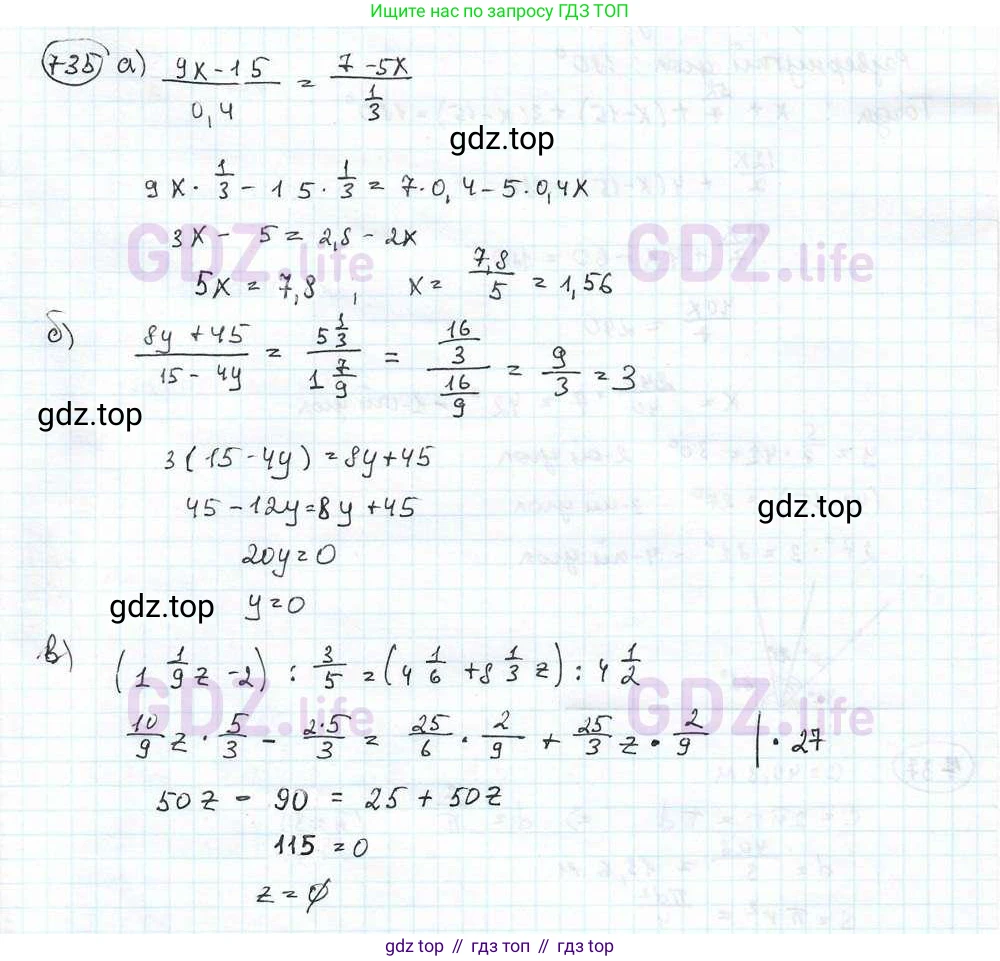 Ищите нас по запросу ГДЗ ТОП
735 а) (9x-15)/0,4 = (7-5x)/(1/3)
gdz.top
9x · 1/3 - 15 · 1/3 = 7·0,4 - 5·0,4x
3x - 5 = 2,8 - 2x
GDZ.life GDZ.life
5x = 7,8 , x = 7,8/5 = 1,56
б) (8y+45)/(15-4y) = (5 1/3)/(1 7/9) = (16/3)/(16/9) = 9/3 = 3
gdz.top
3(15-4y) = 8y+45
45-12y = 8y+45
gdz.top
20y = 0
gdz.top
y = 0
в) (1 1/9 z - 2) : 3/5 = (4 1/6 + 8 1/3 z) : 4 1/2
GDZ.life GDZ.life
10/9 z · 5/3 - 2·5/3 = 25/6 · 2/9 + 25/3 z · 2/9 | · 27
50z - 90 = 25 + 50z
115 = 0
z = ∅
gdz top // гдз топ // gdz top